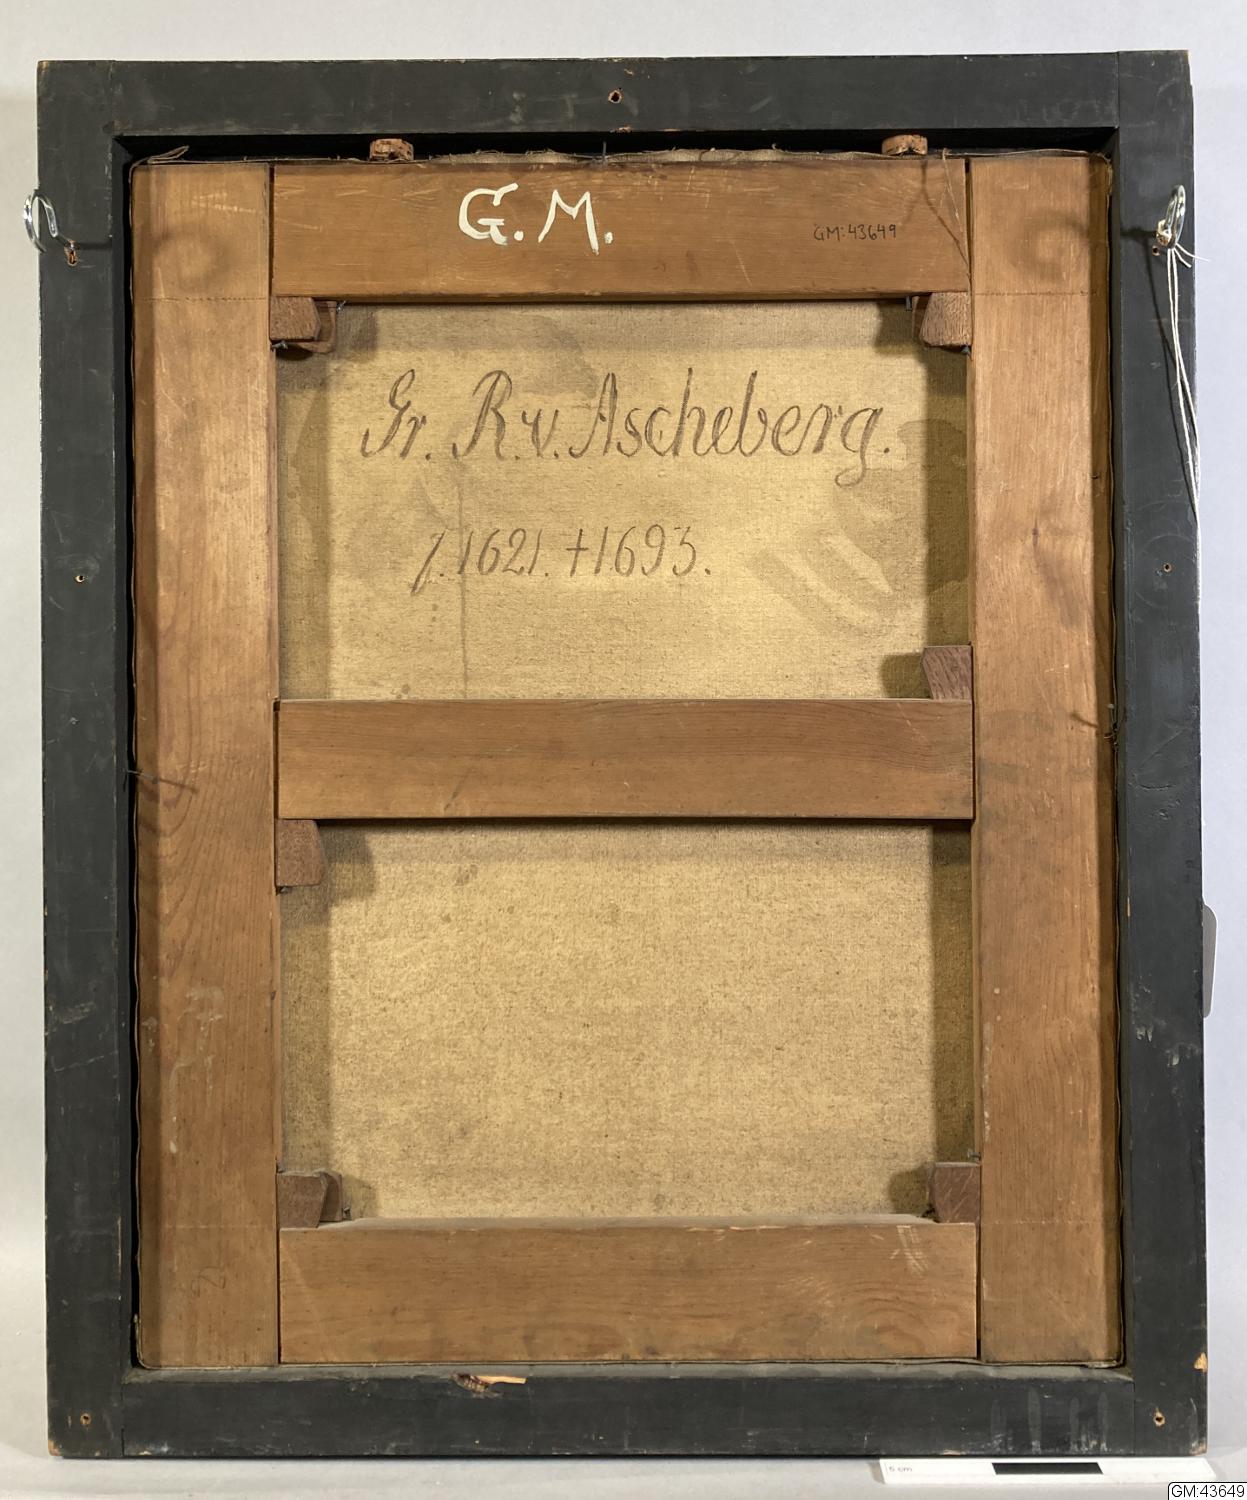 G. M.
GM:43649
Gr. R. v. Ascheberg.
f. 1621. † 1693.
5 cm
GM:43649